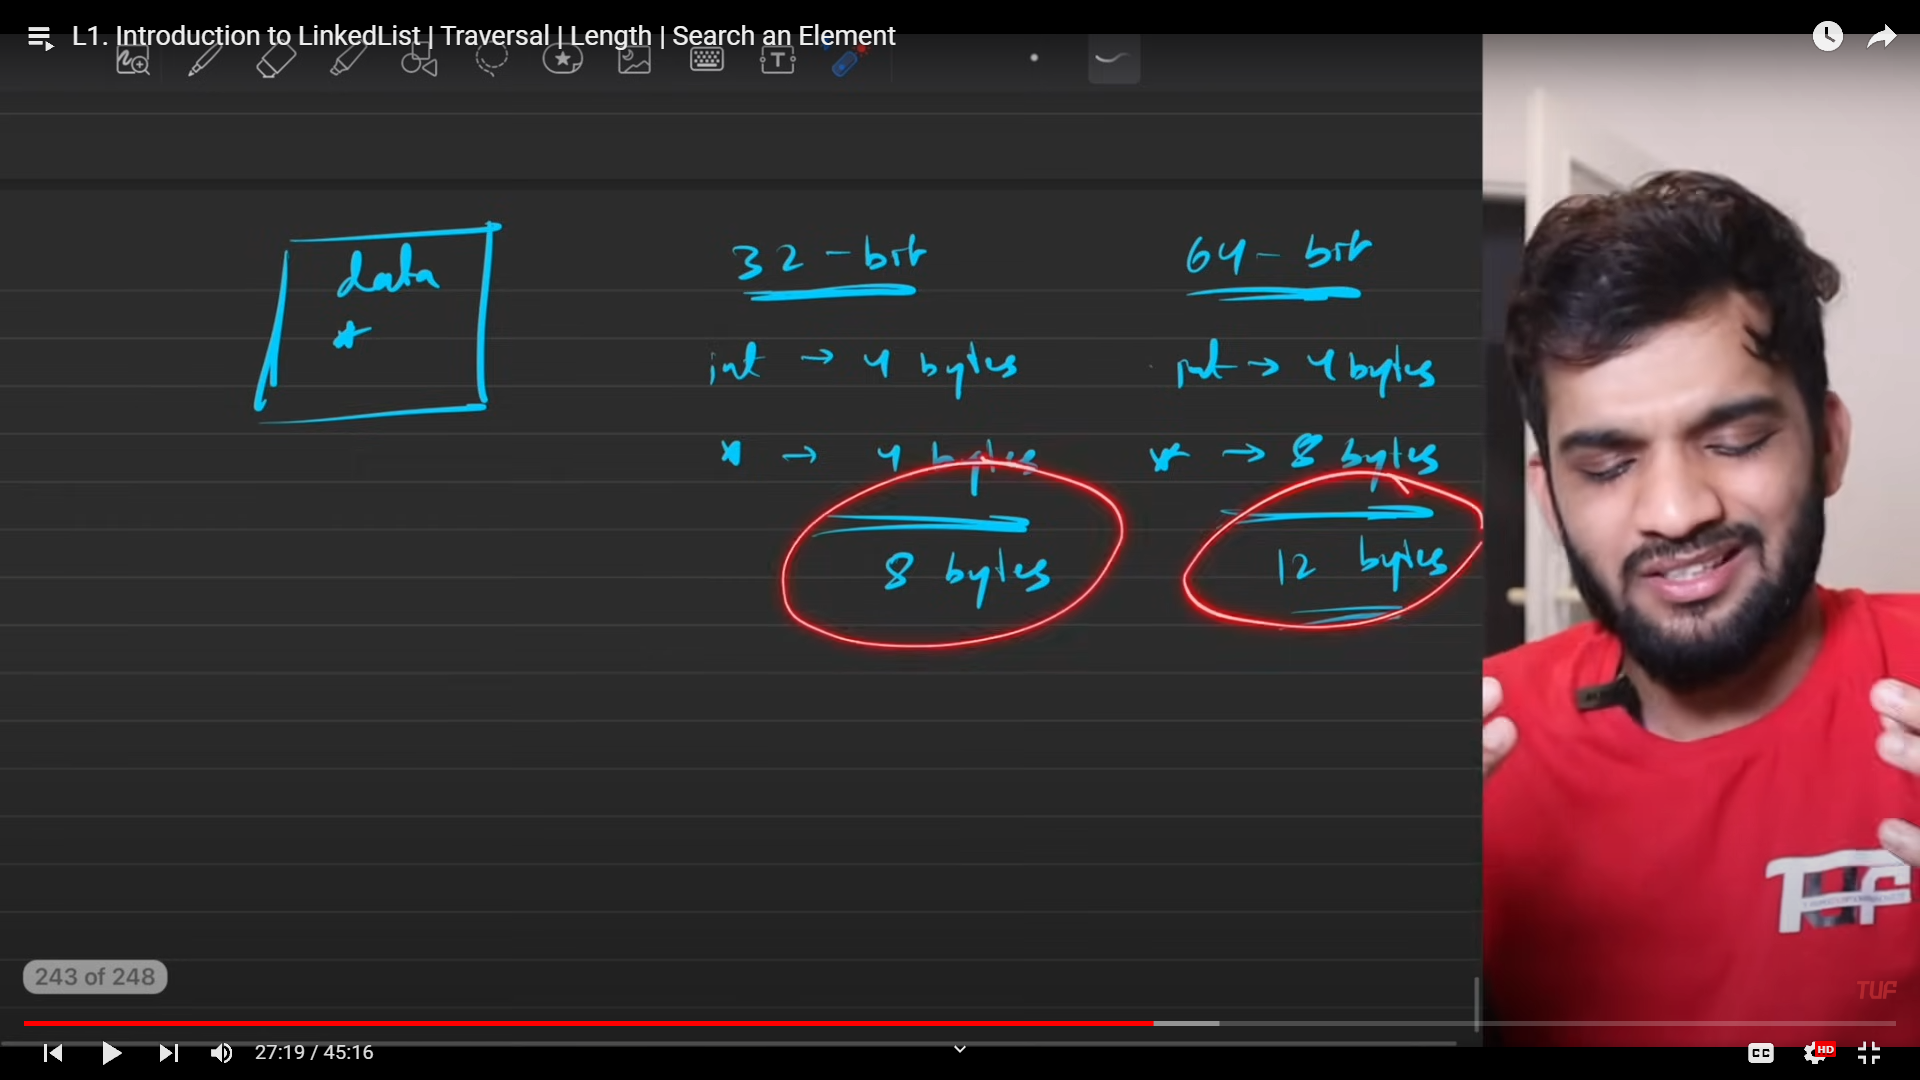 L1. Introduction to LinkedList | Traversal | Length | Search an Element
data
*
32-bit
int → 4 bytes
* → 4 bytes
8 bytes
64-bit
int → 4 bytes
* → 8 bytes
12 bytes
TUF
TUF
243 of 248
27:19 / 45:16
CC
HD